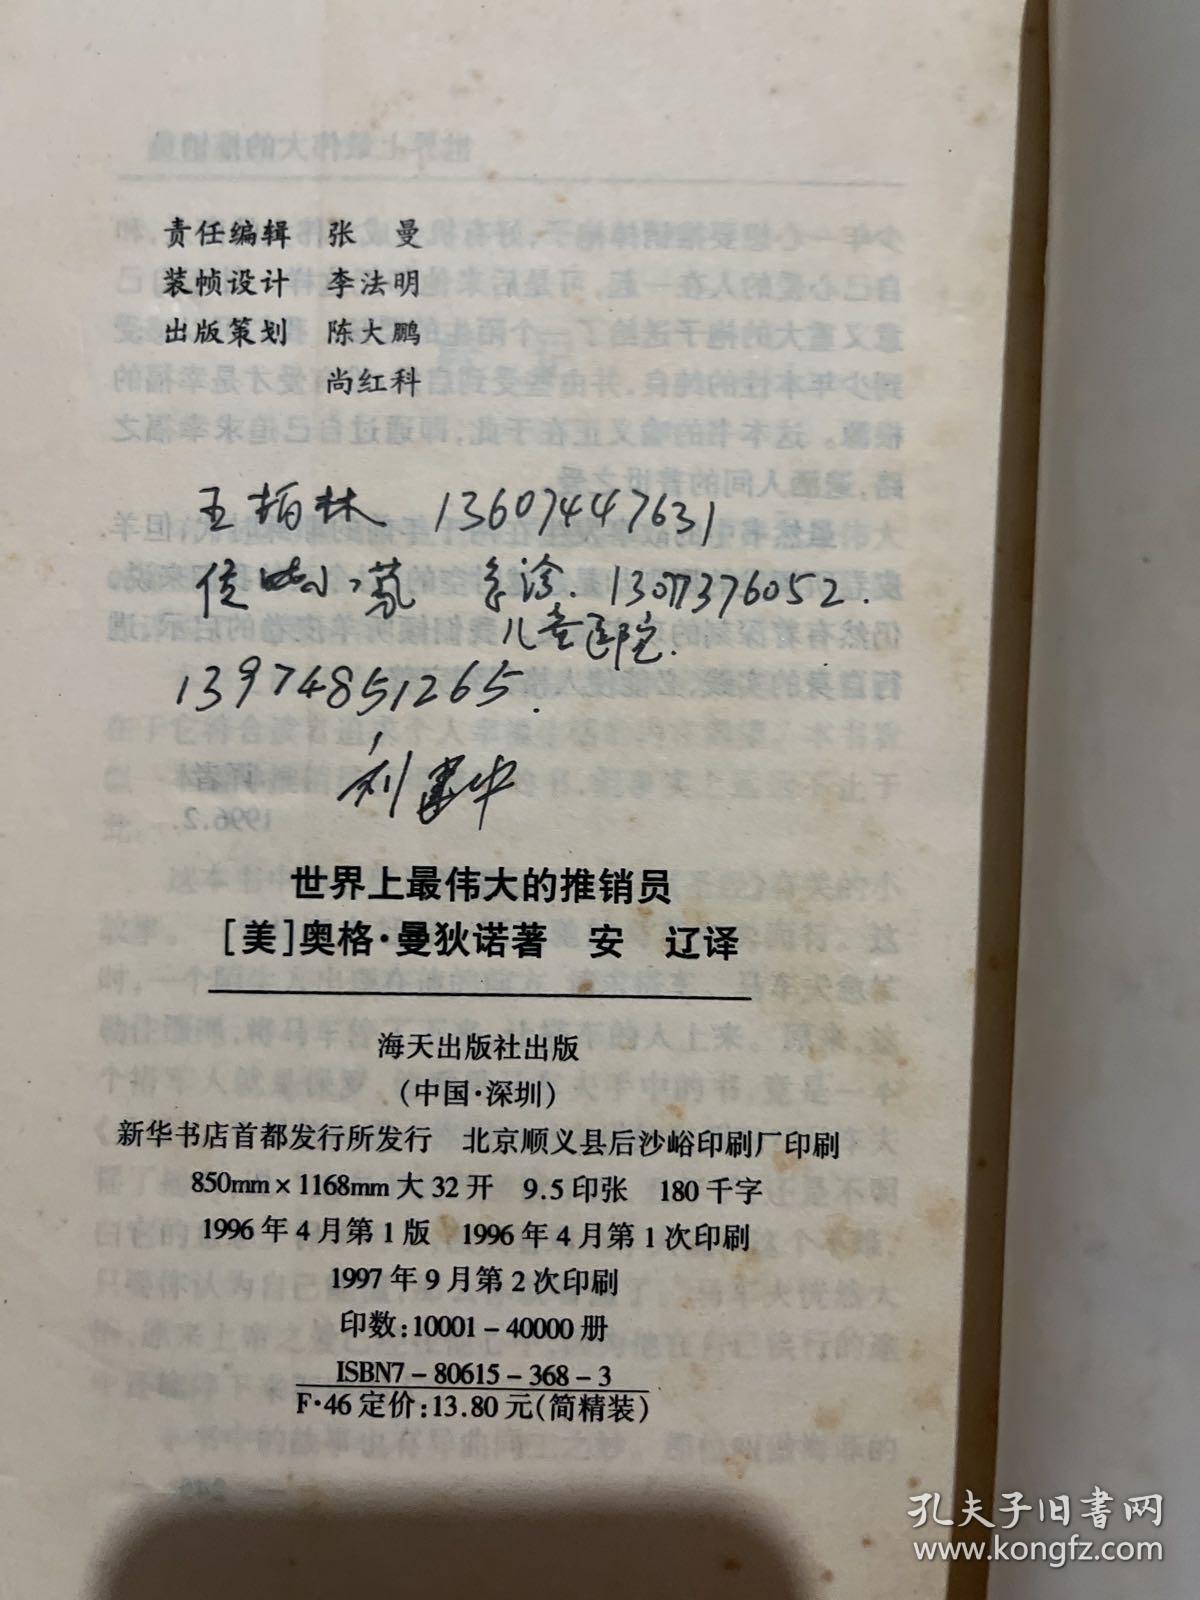 责任编辑　张　曼
装帧设计　李法明
出版策划　陈大鹏
尚红科
王柏林 13607447631
13077376052.
儿童医院.
13974851265.
刘建中
世界上最伟大的推销员
[美]奥格·曼狄诺著　安　辽译
海天出版社出版
(中国·深圳)
新华书店首都发行所发行　北京顺义县后沙峪印刷厂印刷
850mm×1168mm大32开　9.5印张　180千字
1996年4月第1版　1996年4月第1次印刷
1997年9月第2次印刷
印数:10001-40000册
ISBN7-80615-368-3
F·46定价:13.80元(简精装)
孔夫子旧书网
www.kongfz.com